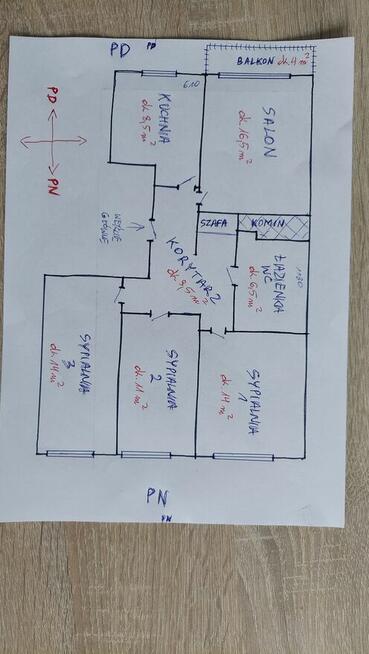 PD
PD
BALKON ok. 4 m²
610
KUCHNIA
ok 8,5 m²
SALON
ok 16,5 m²
PD
PN
WEJŚCIE
GŁÓWNE
SZAFA
KOMIN
KORYTARZ
ok 9,5 m²
ŁAZIENKA
WC
ok 6,5 m²
SYPIALNIA
3
ok. 14 m²
SYPIALNIA
2
ok. 11 m²
SYPIALNIA
1
ok. 14 m²
PN
PN